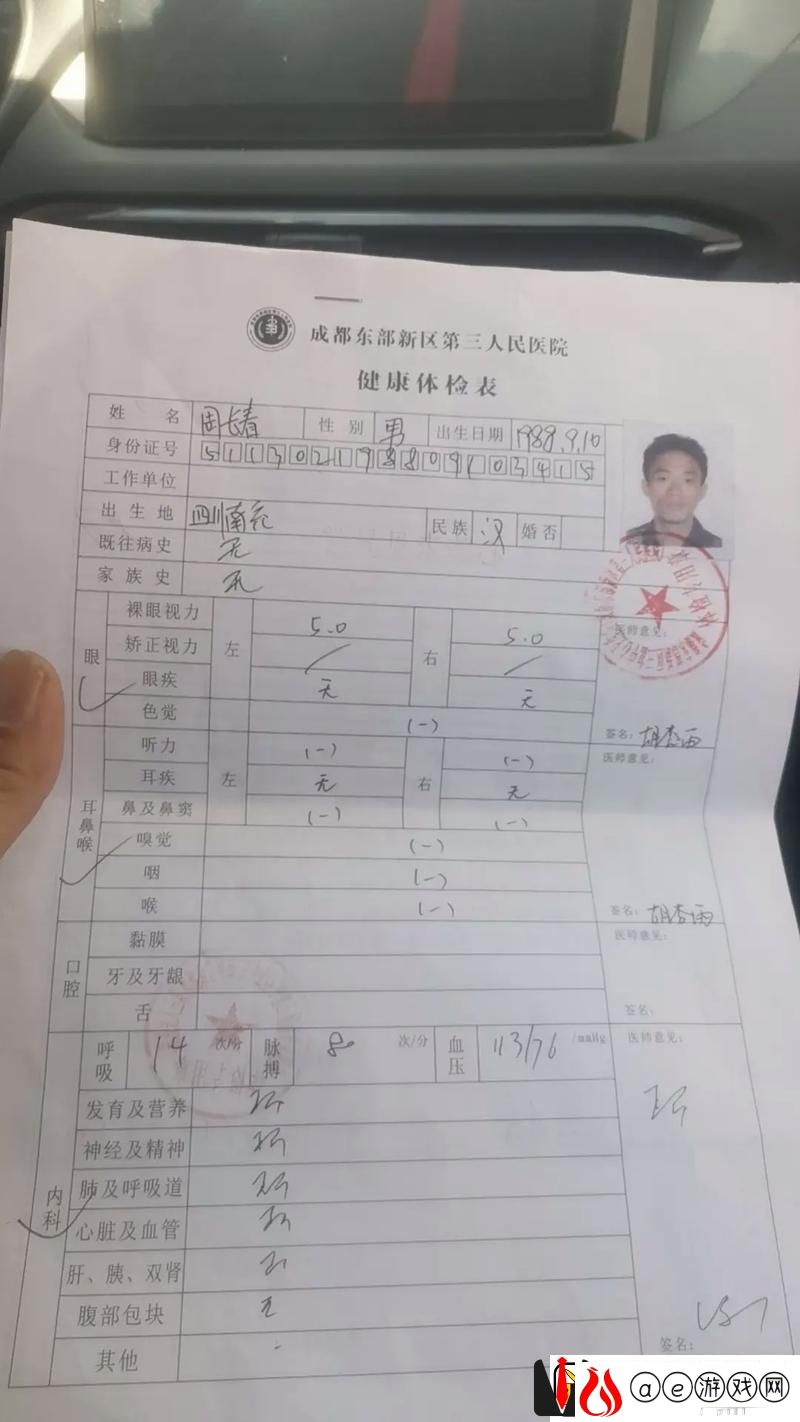 成都东部新区第三人民医院
健康体检表
姓 名 周长春 性别 男 出生日期 1988.9.10
身份证号 511302198809103415
工作单位
出生地 四川南充 民族 汉 婚否
既往病史 无
家族史 无
眼 裸眼视力 左 5.0 右 5.0 医师意见：
矫正视力 / /
眼疾 无 无
色觉 (-) 签名：胡杏雨
耳鼻喉 听力 左 (-) 右 (-) 医师意见：
耳疾 无 无
鼻及鼻窦 (-) (-)
嗅觉 (-)
咽 (-)
喉 (-) 签名：胡杏雨
口腔 黏膜 医师意见：
牙及牙龈
舌 签名：
内科 呼吸 14 次/分 脉搏 80 次/分 血压 113/76 /mmHg 医师意见：
发育及营养
神经及精神
肺及呼吸道
心脏及血管
肝、胰、双肾
腹部包块 无
其他 -
签名：
ae游戏网